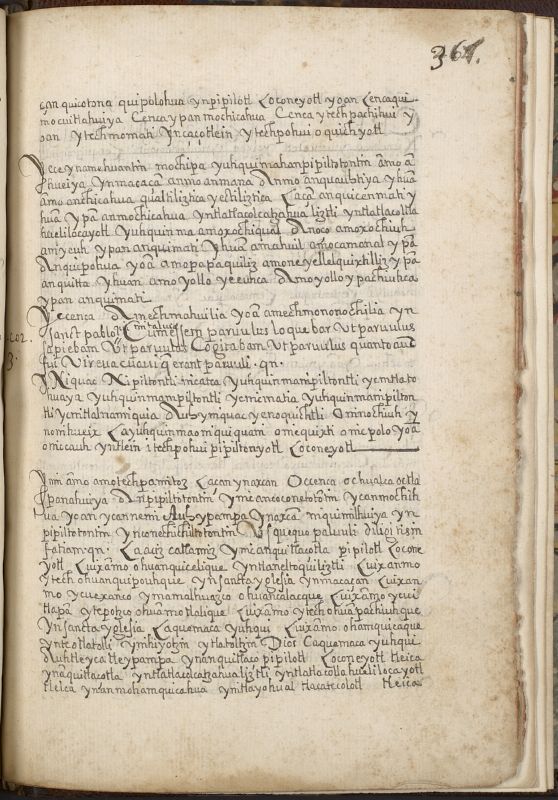 361.
çan quicotona quipolohua ynpipilotl Coconeyotl yoan Cencaqui
mocuitlahuiya Cenca ypan mochicahua Cenca ytechpachihui y
oan ytechmomati ynçaçotlein ytechpohui oquichyotl
Yece ynamehuantin mochipa yuhquimahanpipiltotontin amo a
hueiya ynmacaçã anmo anmana Anmo anquauhtiya yhuã
amo anchicahua qualtiliztica yectiliztica Çacã anquicenmati y
huã ypã anmochicahua yntlatlacolcatzahualiztli yntlatlacolla
huelilocayotl yuhquinma amoxochiqual Anoco amoxochiuh
amiyeuh ypan anquimati yhuan amahuil amocamanal ypã
Anquipohua yoã amopapaquiliz amoneyellelquixtiliz ypã
anquitta yhuan amo yollo yceuhca Amoyolloypachiuhca
ypan anquimati
Yecenca Amechmahuilia yoã amechmononochilia yn
Sanct pablo qui mitalhuia Cum essem paruulus loquebar Vt paruulus
cor.
3.
sapiebam Vt paruulus Cogitabam Vt paruulus quanto aut
fui Vir euacuaui q̃ erant paruuli . qn.
Iniquac Nipiltontli nicatca yuhquinmanipiltontli ynitlato
huaya yuhquinmanipiltontli ynicmatia yuhquinmanipilton
tli ynitlalnamiquia Auh yniquac ynoquichtli Oninochiuh y
nonihueix Çayuhquinmaomiquiquani omequixti onicpolo yoã
omicauh yntlein itechpohui pipiltonyotl Coconeyotl
ymi amo amotechpamitoz Çacan ynaxcan Occenca ochualca oetla
panahuiya Anpipiltotontin ynicanconetotõtin ynicanmochih
hua yoan ycannemi Auh ypampa ynaxcã niquimilhuiya yn
pipiltotontin yniconechichiltotontin Vsquequo paruuli diligitis in
fatiam: qn. Çaquiz catlamiz ynicanquitlaçotla pipilotl Cocone
yotl Cuixamo ohuanquicelique yntlaneltoquiliztli Cuixanmo
ytech ohuanquipouhque ynSancta yglesia ynmacaçan Cuixan
mo ycuexanco ymamalhuazco ohuancalacque Cuixamo ycuitla
tlapã ytepotzco ohuamotlalique Cuixamo ytech ohuãpachiuhque
ynSancta yglesia Caquemaca yuhqui Cuixamo ohamquicaque
ynteotlatolli ymihiyotzin ytlatoltzin Dios Caquemaca yuhqui
Auh tleyca tleypampa ynanquitlaço pipilotl Coconeyotl tleica
ynãquitlaçotla yntlatlacolcatzahualiztli yntlatlacollahuelilocayotl
tleica ynanmohamquicahua ynitlayohual tlacatecolotl tleica